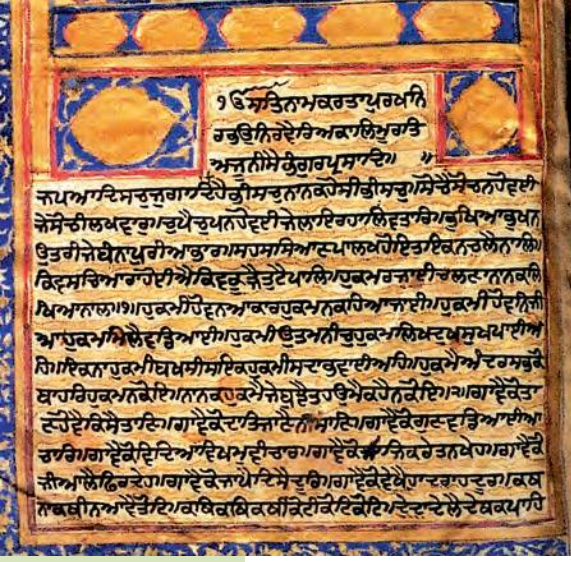 ੴਸਤਿਨਾਮਕਰਤਾਪੁਰਖਨਿ
ਰਭਉਨਿਰਵੈਰਿਅਕਾਲਿਮੂਰਤਿ
ਅਜੂਨੀਸੈਭੰਗੁਰਪ੍ਰਸਾਦਿ॥ ॥
ਜਪਆਦਿਸਚੁਜੁਗਾਦਿਹੈਭੀਸਚੁਨਾਨਕਹੋਸੀਭੀਸਚੁ॥ਸੋਚੈਸੋਚਨਹੋਵਈ
ਜੇਸੋਚੀਲਖਵਾਰ॥ਚੁਪੈਚੁਪਨਹੋਵਈਜੇਲਾਇਰਹਾਲਿਵਤਾਰ॥ਭੁਖਿਆਭੁਖਨ
ਉਤਰੀਜੇਬੰਨਾਪੁਰੀਆਭਾਰ॥ਸਹਸਸਿਆਣਪਾਲਖਹੋਇਤਇਕਨਚਲੈਨਾਲਿ॥
ਕਿਵਸਚਿਆਰਾਹੋਈਐਕਿਵਕੂੜੈਤੁਟੈਪਾਲਿ॥ਹੁਕਮਰਜਾਈਚਲਣਾਨਾਨਕਲਿ
ਖਿਆਨਾਲ॥੧॥ਹੁਕਮੀਹੋਵਨਆਕਾਰਹੁਕਮਨਕਹਿਆਜਾਈ॥ਹੁਕਮੀਹੋਵਨਿਜੀ
ਆਹੁਕਮਮਿਲੈਵਡਿਆਈ॥ਹੁਕਮੀਉਤਮਨੀਚੁਹੁਕਮਲਿਖਦੁਖਸੁਖਪਾਈਅ
ਹਿ॥ਇਕਨਾਹੁਕਮੀਬਖਸੀਸਇਕਹੁਕਮੀਸਦਾਭਵਾਈਅਹਿ॥ਹੁਕਮੈਅੰਦਰਸਭਕੋ
ਬਾਹਰਿਹੁਕਮਨਕੋਇ॥ਨਾਨਕਹੁਕਮੈਜੇਬੁਝੈਤਹਉਮੈਕਹੈਨਕੋਇ॥੨॥ਗਾਵੈਕੋਤਾ
ਣਹੋਵੈਕਿਸੈਤਾਣਿ॥ਗਾਵੈਕੋਦਾਤਿਜਾਣੈਨੀਸਾਣਿ॥ਗਾਵੈਕੋਗੁਣਵਡਿਆਈਆ
ਚਾਰ॥ਗਾਵੈਕੋਵਿਦਿਆਵਿਖਮਵੀਚਾਰ॥ਗਾਵੈਕੋਸਾਜਿਕਰੇਤਨਖੇਹ॥ਗਾਵੈਕੋ
ਜੀਆਲੈਫਿਰਦੇਹ॥ਗਾਵੈਕੋਜਾਪੈਦਿਸੈਦੂਰਿ॥ਗਾਵੈਕੋਵੇਖੈਹਾਦਰਾਹਦੂਰ॥ਕਥ
ਨਾਕਥੀਨਆਵੈਤੋਟਿ॥ਕਥਿਕਥਿਕਥੀਕੋਟੀਕੋਟਿਕੋਟਿ॥ਦੇਦਾਦੇਲੈਦੇਥਕਪਾਹਿ